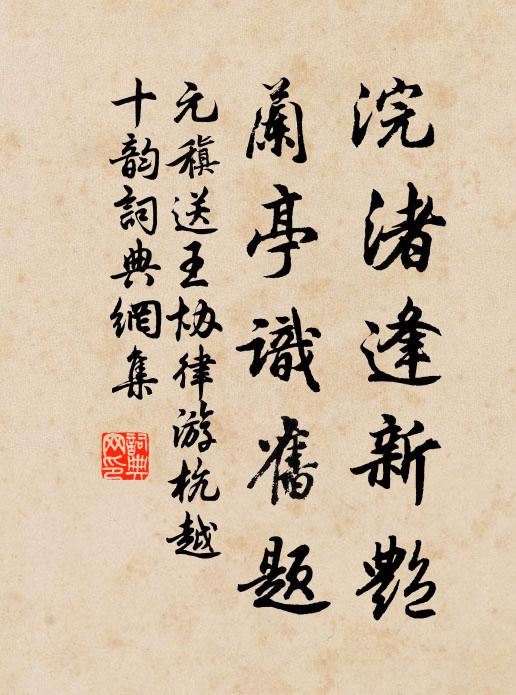 浣渚逢新艷
蘭亭識舊題
元稹送王协律游杭越
十韵詞典網集
詞典网印